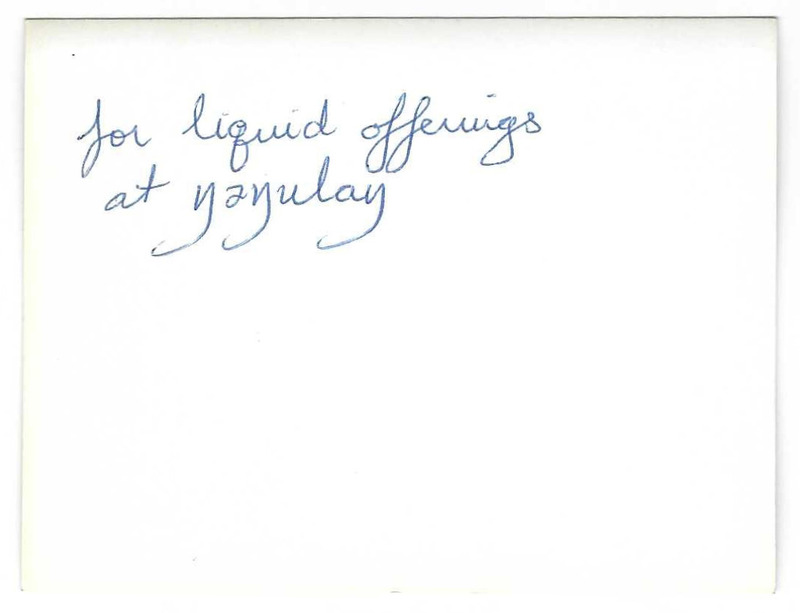 for liquid offerings
at ŋəŋulaŋ